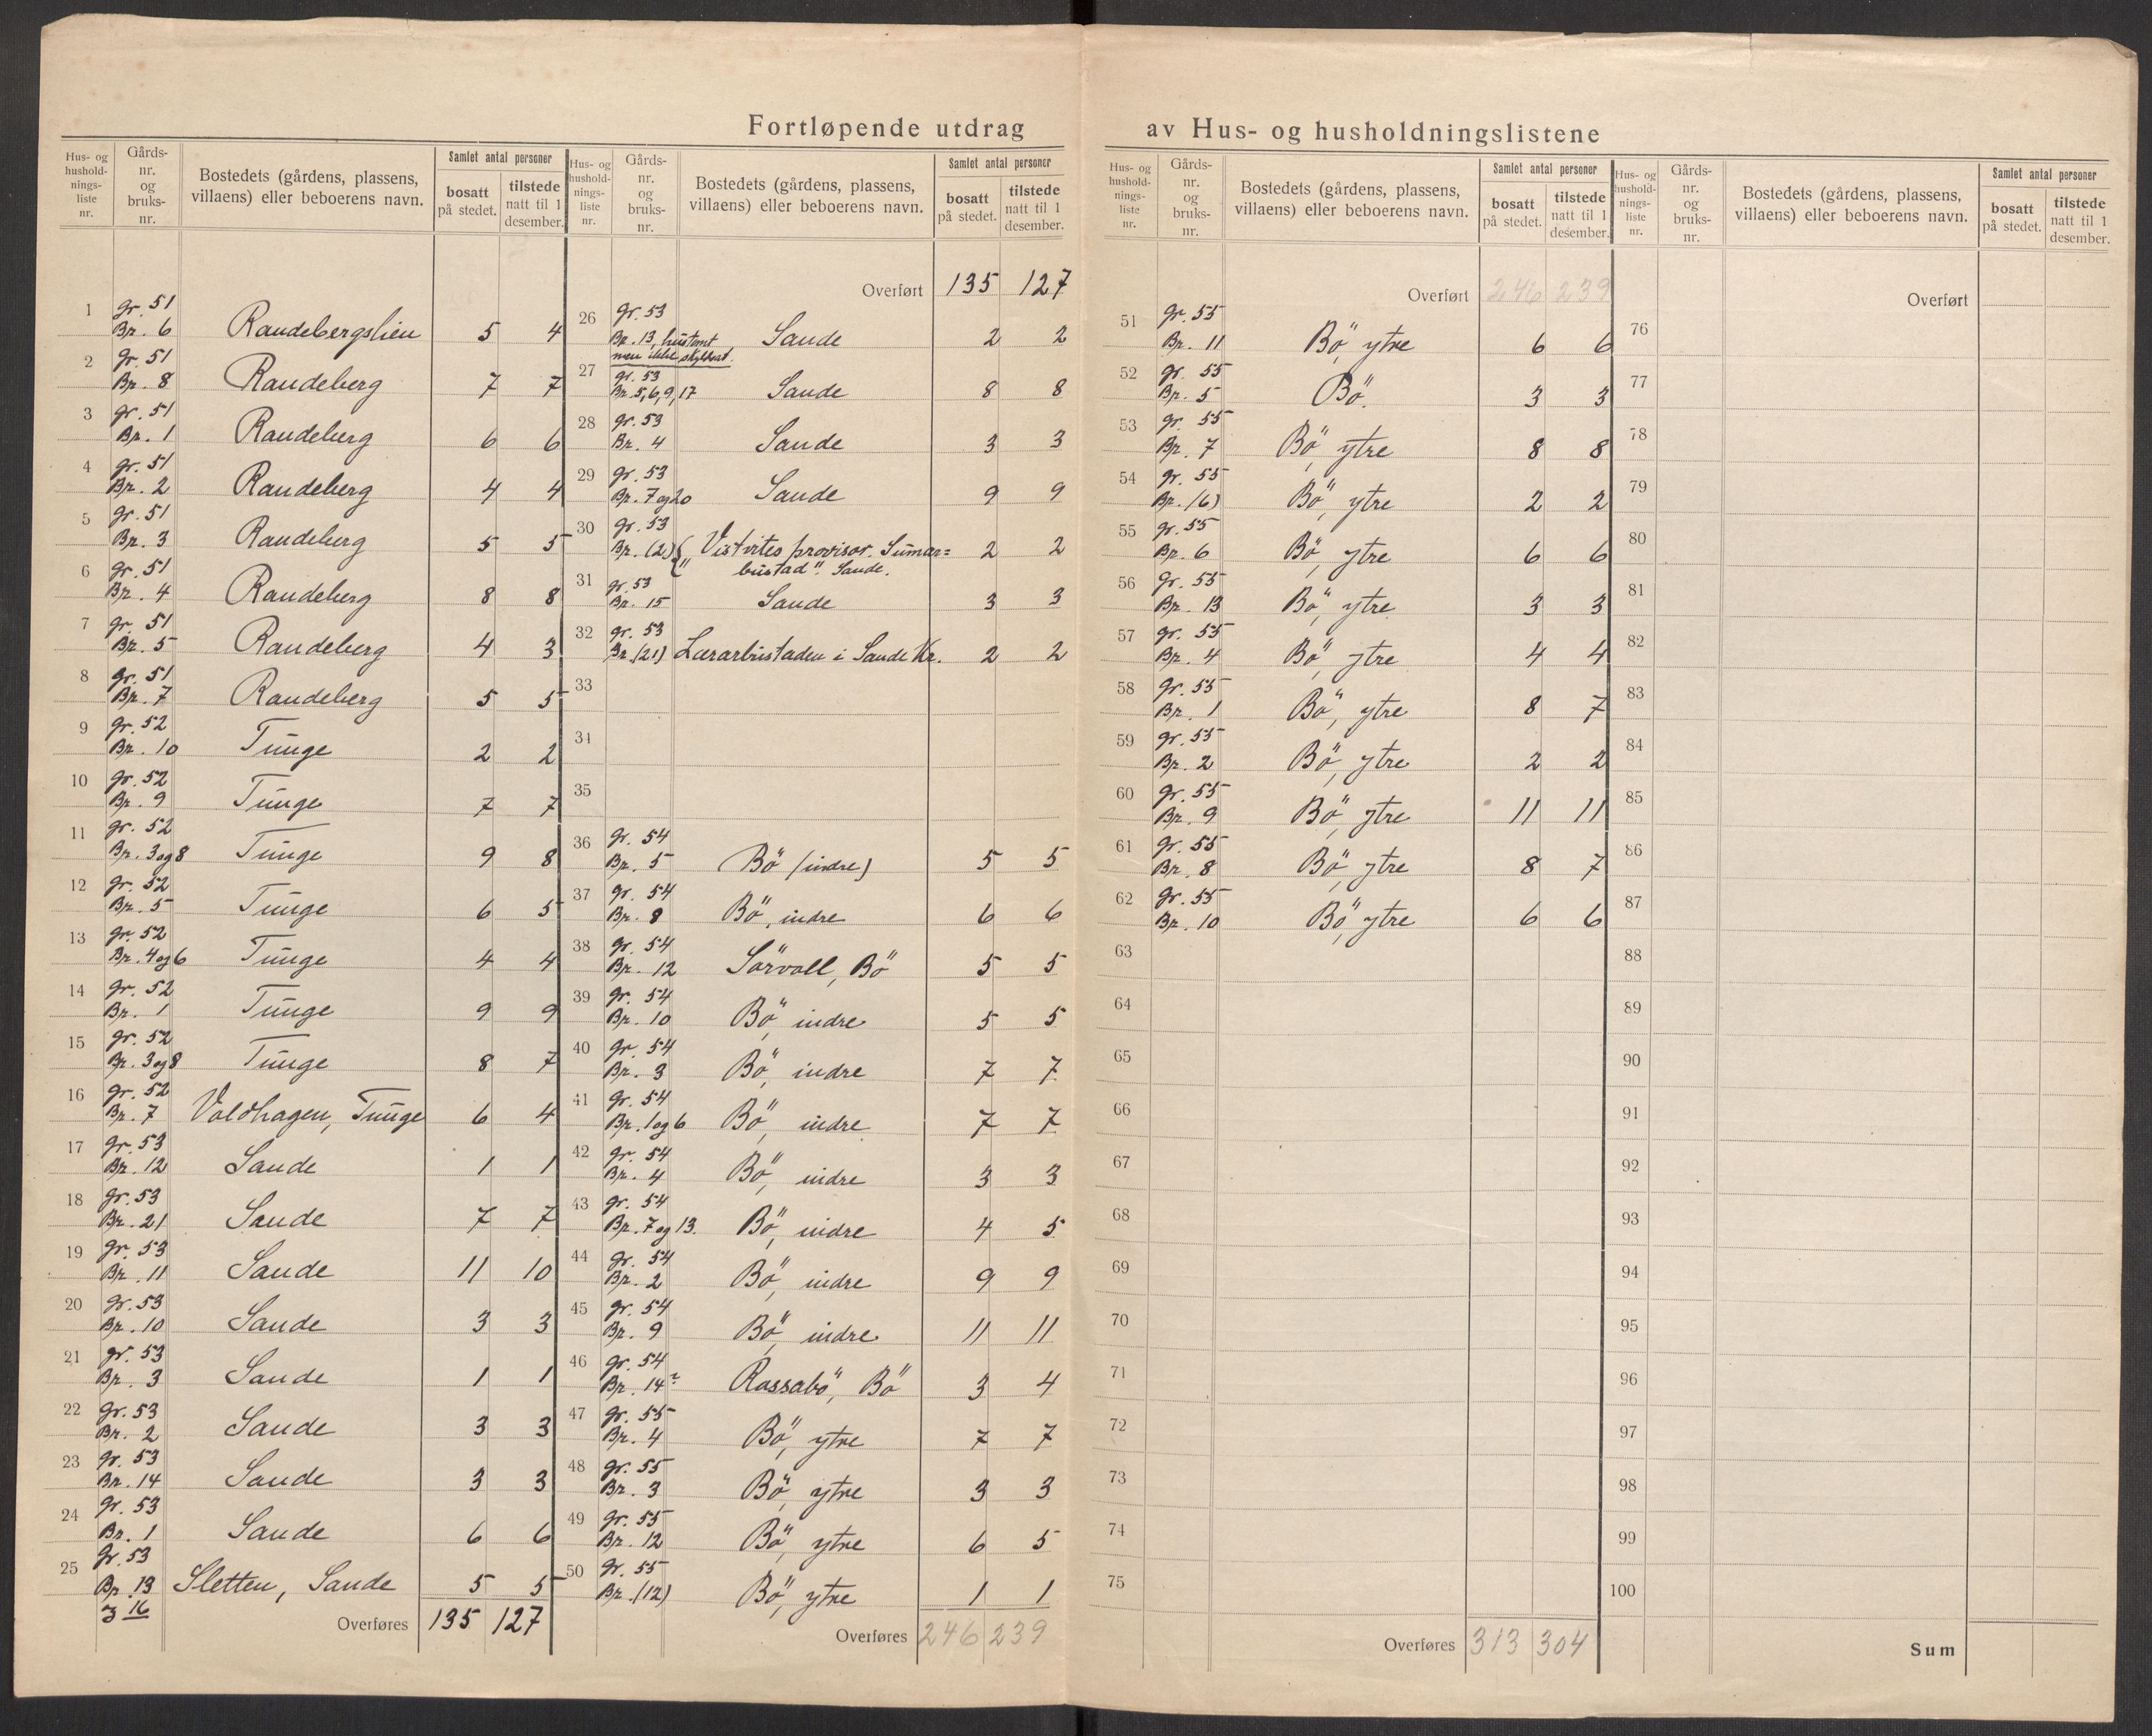 Fortløpende utdrag av Hus- og husholdningslistene
Hus- og hushold- nings- liste nr. | Gårds- nr. og bruks- nr. | Bostedets (gårdens, plassens, villaens) eller beboerens navn. | Samlet antal personer | bosatt på stedet. | tilstede natt til 1 desember.
1 gr. 51 Br. 6 Randebergslien 5 4
2 gr. 51 Br. 8 Randeberg 7 7
3 gr. 51 Br. 1 Randeberg 6 6
4 gr. 51 Br. 2 Randeberg 4 4
5 gr. 51 Br. 3 Randeberg 5 5
6 gr. 51 Br. 4 Randeberg 8 8
7 gr. 51 Br. 5 Randeberg 4 3
8 gr. 51 Br. 7 Randeberg 5 5
9 gr. 52 Br. 10 Tunge 2 2
10 gr. 52 Br. 9 Tunge 7 7
11 gr. 52 Br. 3 og 8 Tunge 9 8
12 gr. 52 Br. 5 Tunge 6 5
13 gr. 52 Br. 4 og 6 Tunge 4 4
14 gr. 52 Br. 1 Tunge 9 9
15 gr. 52 Br. 3 og 8 Tunge 8 7
16 gr. 52 Br. 7 Voldhagen, Tunge 6 4
17 gr. 53 Br. 12 Sande 1 1
18 gr. 53 Br. 21 Sande 7 7
19 gr. 53 Br. 11 Sande 11 10
20 gr. 53 Br. 10 Sande 3 3
21 gr. 53 Br. 3 Sande 1 1
22 gr. 53 Br. 2 Sande 3 3
23 gr. 53 Br. 14 Sande 3 3
24 gr. 53 Br. 1 Sande 6 6
25 gr. 53 Br. 13 Sletten, Sande 5 5
16
Overføres 135 127
Hus- og hushold- nings- liste nr. | Gårds- nr. og bruks- nr. | Bostedets (gårdens, plassens, villaens) eller beboerens navn. | Samlet antal personer | bosatt på stedet. | tilstede natt til 1 desember.
Overført 135 127
26 gr. 53 Br. 13, hustomt men ikke skyldsat. Sande 2 2
27 gr. 53 Br. 5, 6, 9, 17 Sande 8 8
28 gr. 53 Br. 4 Sande 3 3
29 gr. 53 Br. 7 og 20 Sande 9 9
30 gr. 53 Br. (2) " Vistvites provisor. Sumar= 2 2
bustad". Sande.
31 gr. 53 Br. 15 Sande 3 3
32 gr. 53 Br. (21) Lærarbustaden i Sande Kr. 2 2
33
34
35
36 gr. 54 Br. 5 Bö (indre) 5 5
37 gr. 54 Br. 8 Bö, indre 6 6
38 gr. 54 Br. 12 Sörvoll, Bö 5 5
39 gr. 54 Br. 10 Bö, indre 5 5
40 gr. 54 Br. 3 Bö, indre 7 7
41 gr. 54 Br. 1 og 6 Bö, indre 7 7
42 gr. 54 Br. 4 Bö, indre 3 3
43 gr. 54 Br. 7 og 13. Bö, indre 4 5
44 gr. 54 Br. 2 Bö, indre 9 9
45 gr. 54 Br. 9 Bö, indre 11 11
46 gr. 54 Br. 14? Rossabö, Bö 3 4
47 gr. 55 Br. 4 Bö, ytre 7 7
48 gr. 55 Br. 3 Bö, ytre 3 3
49 gr. 55 Br. 12 Bö, ytre 6 5
50 gr. 55 Br. (12) Bö, ytre 1 1
Overføres 246 239
Hus- og hushold- nings- liste nr. | Gårds- nr. og bruks- nr. | Bostedets (gårdens, plassens, villaens) eller beboerens navn. | Samlet antal personer | bosatt på stedet. | tilstede natt til 1 desember.
Overført 246 239
51 gr. 55 Br. 11 Bö, ytre 6 6
52 gr. 55 Br. 5 Bö. 3 3
53 gr. 55 Br. 7 Bö, ytre 8 8
54 gr. 55 Br. (6) Bö, ytre 2 2
55 gr. 55 Br. 6 Bö, ytre 6 6
56 gr. 55 Br. 13 Bö, ytre 3 3
57 gr. 55 Br. 4 Bö, ytre 4 4
58 gr. 55 Br. 1 Bö, ytre 8 7
59 gr. 55 Br. 2 Bö, ytre 2 2
60 gr. 55 Br. 9 Bö, ytre 11 11
61 gr. 55 Br. 8 Bö, ytre 8 7
62 gr. 55 Br. 10 Bö, ytre 6 6
63
64
65
66
67
68
69
70
71
72
73
74
75
Overføres 313 304
Hus- og hushold- nings- liste nr. | Gårds- nr. og bruks- nr. | Bostedets (gårdens, plassens, villaens) eller beboerens navn. | Samlet antal personer | bosatt på stedet. | tilstede natt til 1 desember.
Overført
76
77
78
79
80
81
82
83
84
85
86
87
88
89
90
91
92
93
94
95
96
97
98
99
100
Sum